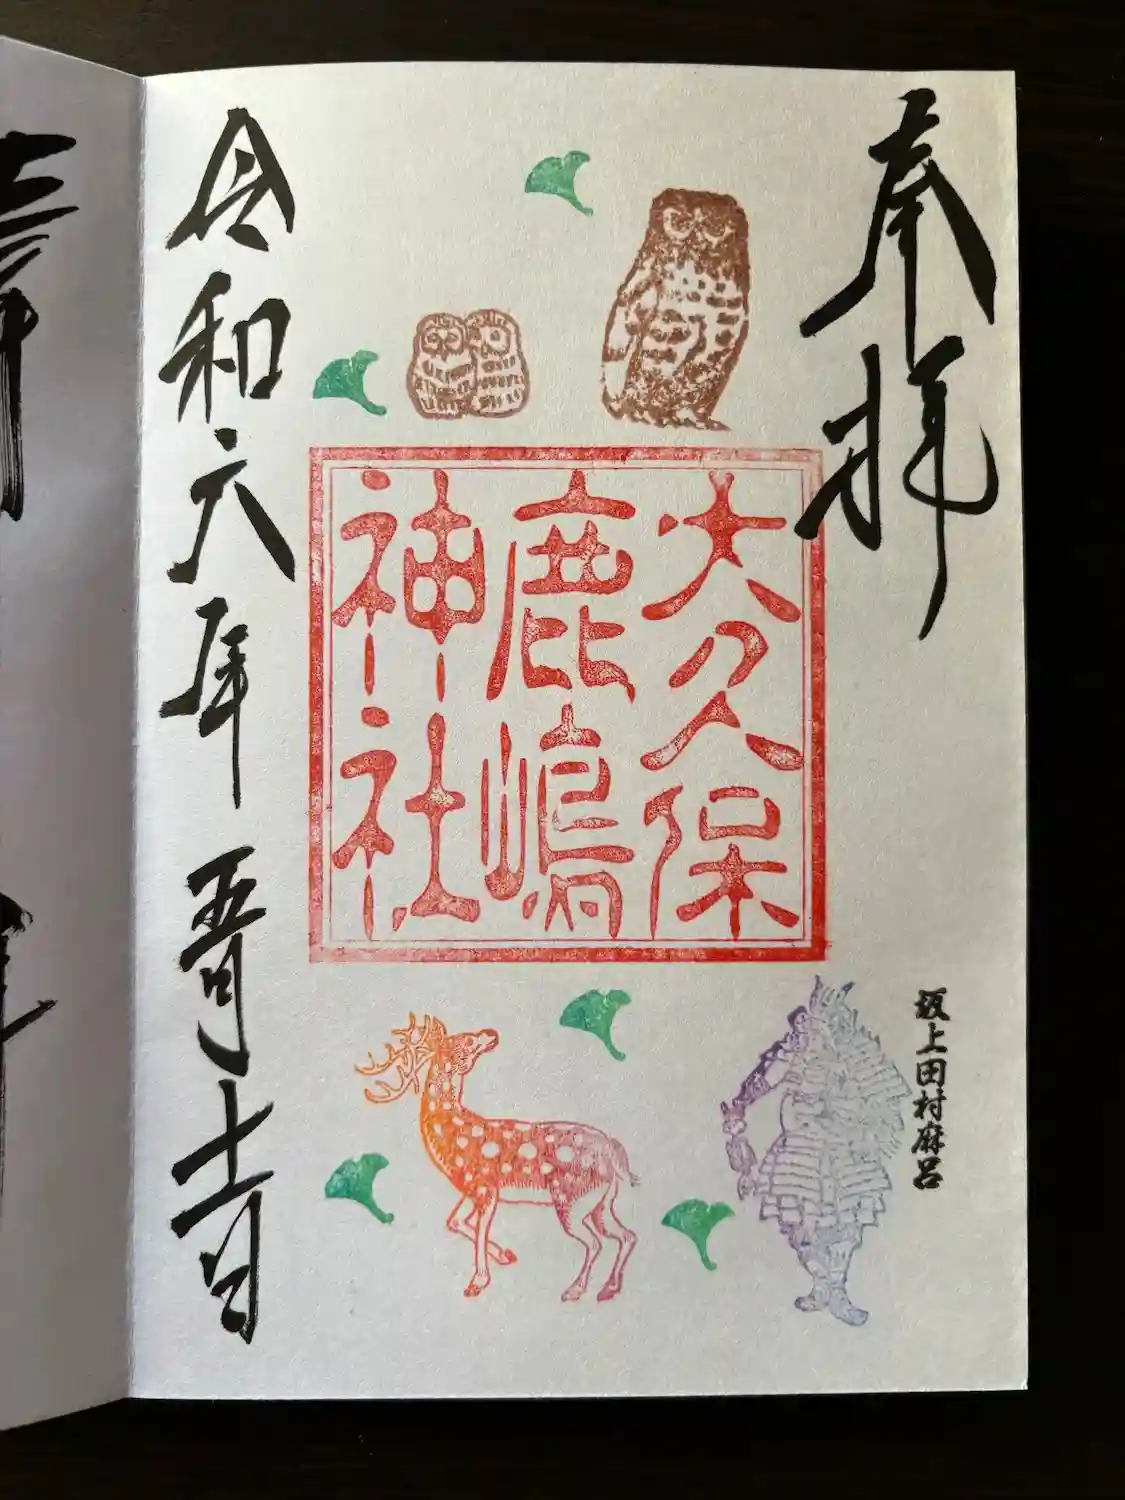 奉拝
大久保
鹿嶋
神社
坂上田村麻呂
令和六年五月十一日